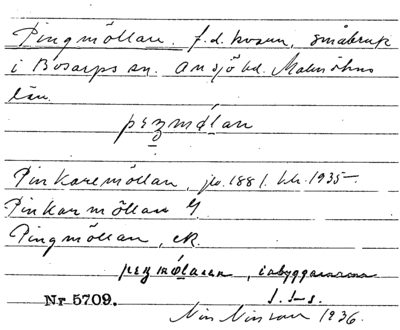 Pingmöllan, f.d. kvarn, småbruk
i Bosarps sn. Onsjö hd. Malmöhus
län.
Pinkaremöllan, jb. 1881. hlr. 1935
Pinkan möllan
Pingmöllan, ek.
inbyggarna
Nr 5709.
Nils Nilsson 1936.